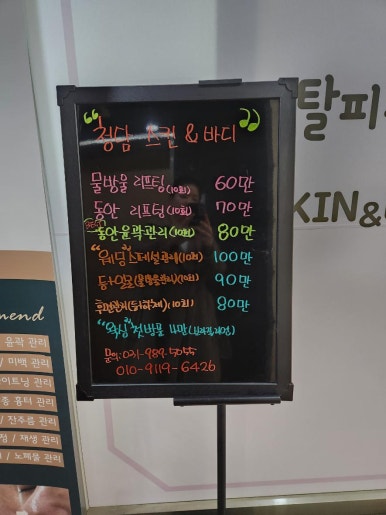 청담 스킨 & 바디
물방울 리프팅(10회) 60만
동안 리프팅(10회) 70만
동안윤곽관리(10회) 80만
"웨딩"스페셜관리(10회) 100만
등+얼굴(물방울관리)(10회) 90만
후면관리(등+하체)(10회) 80만
첫방문 4만
문의:021-989-5055
010-9119-6426
탈피
KIN&
mend
윤곽 관리
/ 미백 관리
이트닝 / 관리
종 흉터 / 관리
/ 잔주름 관리
정 / 재생 관리
/ 노폐물 관리